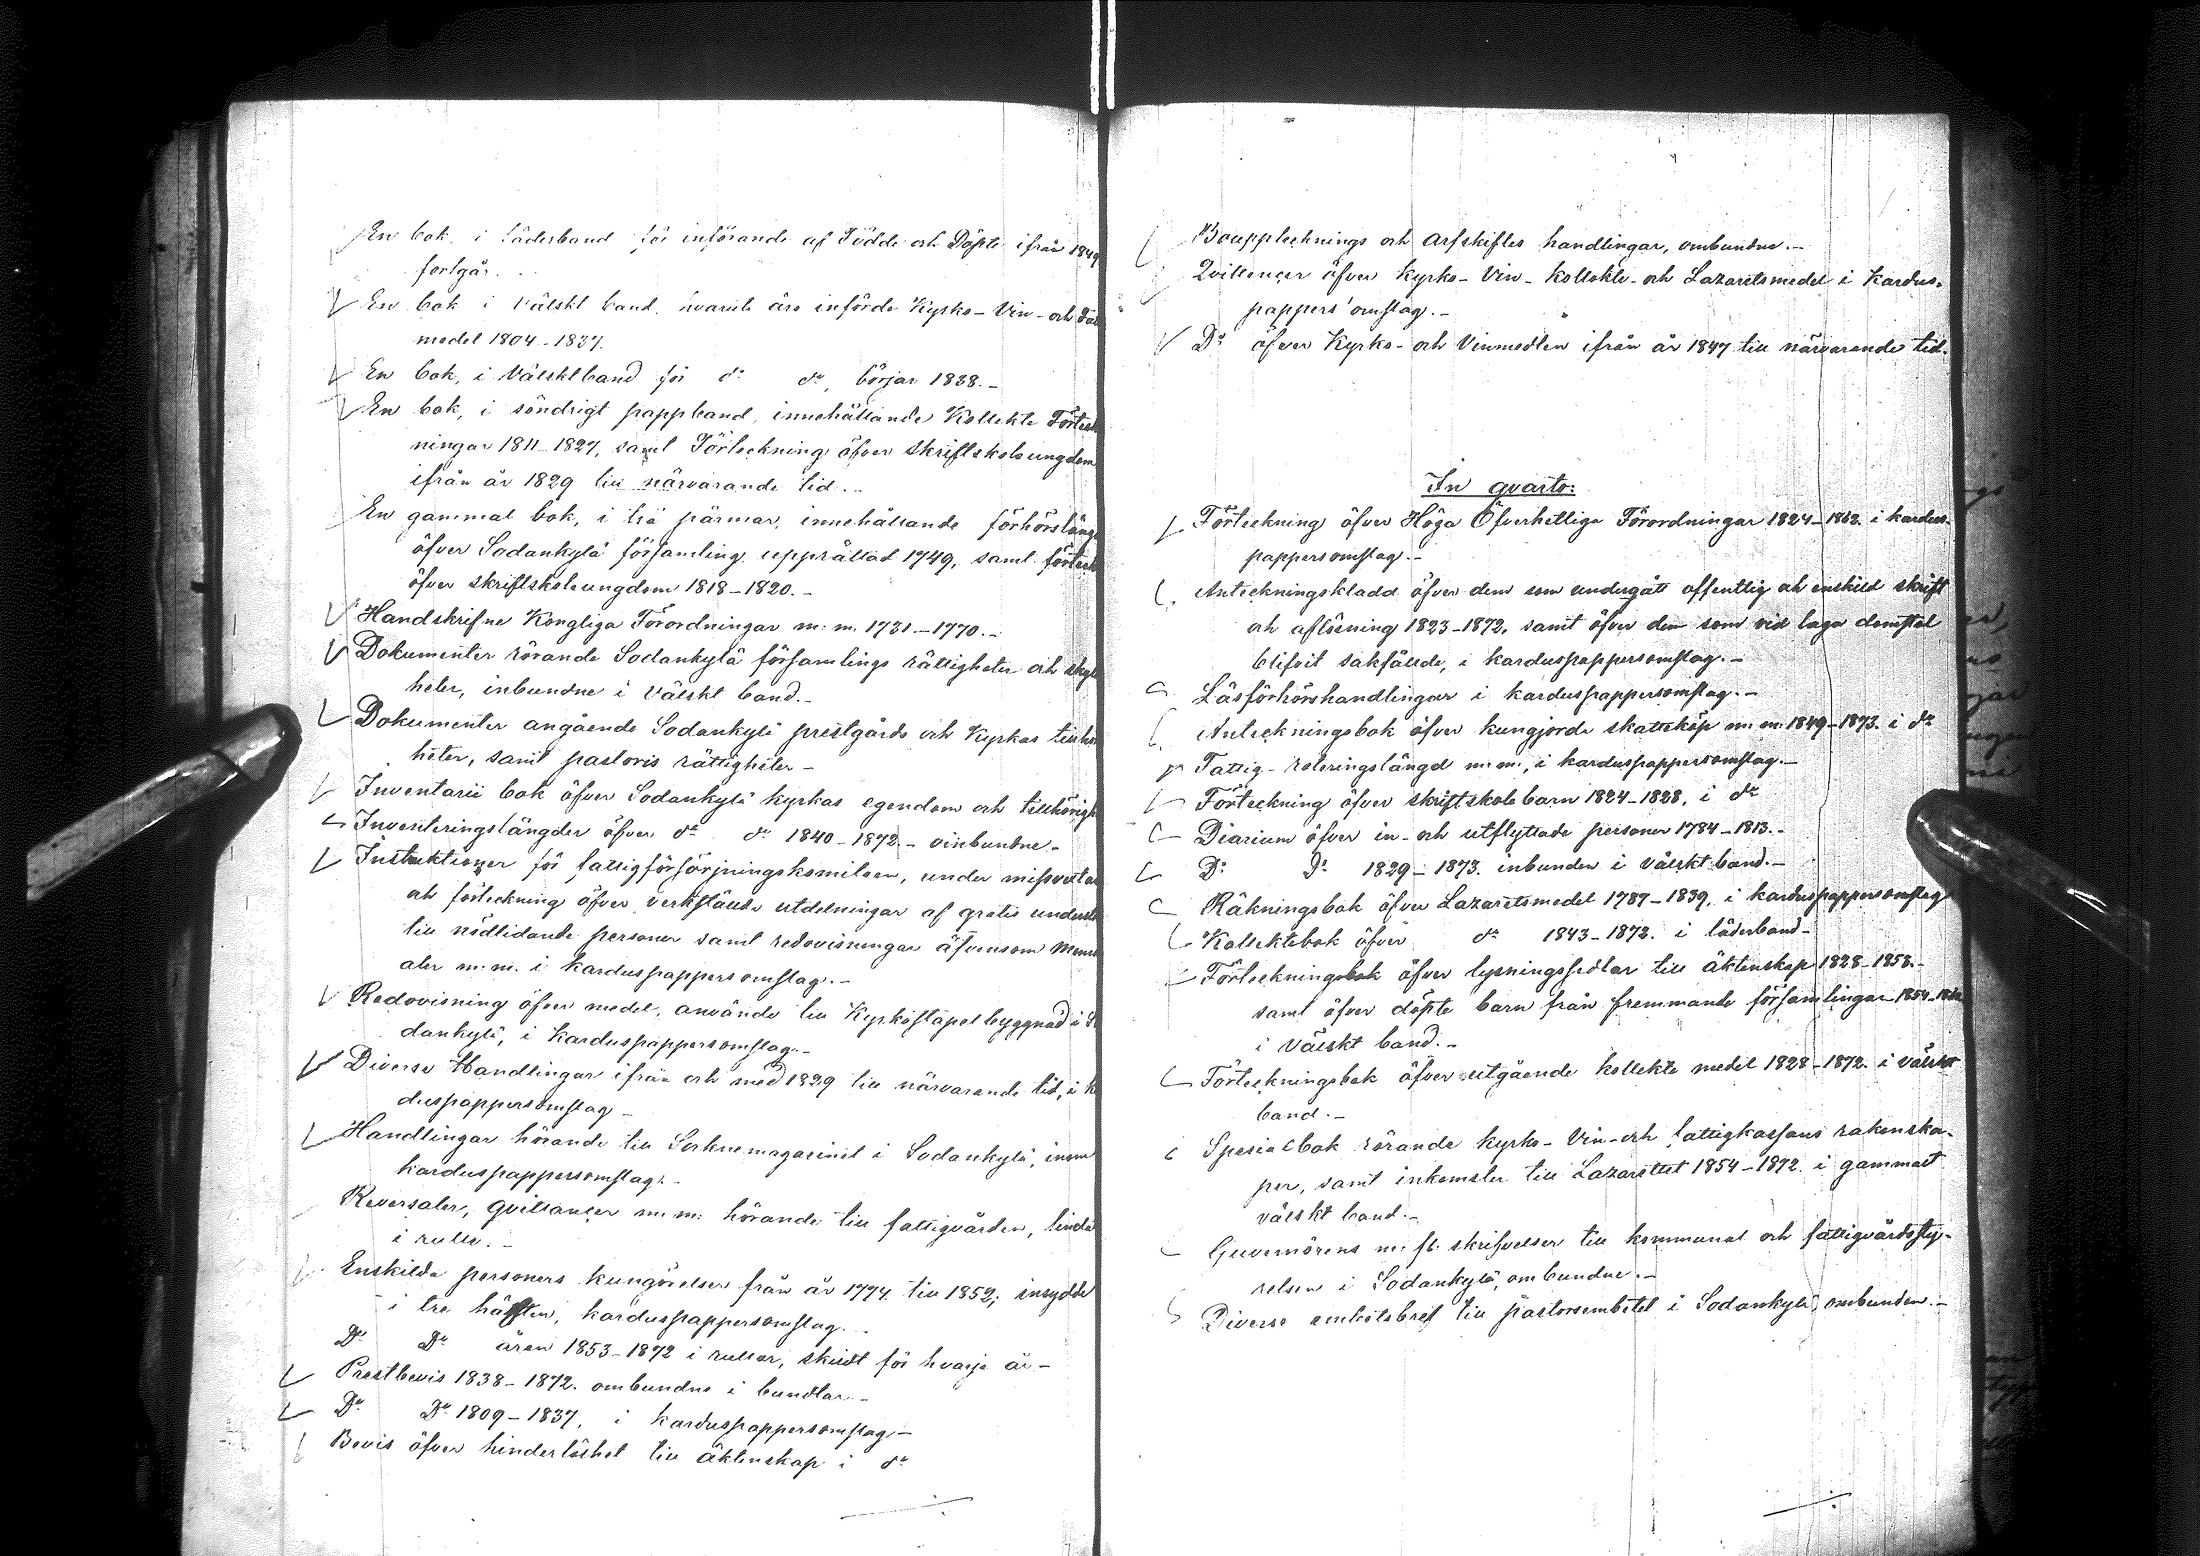 En bok i läderband för införande af Födde och Döpte ifrån 1849
fortgår.
En bok i välskt band, hvaruti äro införde Kyrko- Vin- och
medel 1804-1837.
En bok, i Välsktband för do do, börjar 1838.-
En bok, i söndrigt pappband, innehållande Kollekte Förteck
ningar 1811-1827, samt Förteckning öfver skriftskoleungdom
ifrån år 1829 till närvarande tid.-
En gammal bok, i trä pärmar, innehållande förhörsläng
öfver Sodankylä församling, upprättad 1749, samt förteck
öfver skriftskoleungdom 1818-1820.-
Handskrifne Kongliga Förordningar m. m. 1731-1770.-
Dokumenter rörande Sodankylä församlings rättigheter och skyl
heter, inbundne i välskt band.-
Dokumenter angående Sodankylä prestgårds och Kyrkas tillhö
heter, samt pastoris rättigheter-
Inventarii bok öfver Sodankylä kyrkas egendom och tillhörigh
Inventeringslängder öfver do do 1840-1872.- oinbundne-
Instruktioner för fattigförsörjningskomiteen, under missvextar
och förteckning öfver verkstälde utdelningar af gratis underst
till nödlidande personer samt redovisningar äfvensom Memo
aler m.m. i karduspappersomslag.-
Redovisning öfver medel, använde till Kyrkostapelbyggnad i So
dankylä, i karduspappersomslag.-
Diverse Handlingar ifrån och med 1829 till närvarande tid, i k
duspappersomslag-
Handlingar hörande till Socknemagasinet i Sodankylä, inom
karduspappersomslag.-
Reversaler, qvittancer m. m. hörande till fattigvården,
i rulle.-
Enskilda personers kungörelser från år 1774 till 1852; insydde
i tre häften, karduspappersomslag.
Do Do åren 1853-1872 i rullar, skildt för hvarje år-
Prestbevis 1838-1872. ombundne i bundtar.-
Do Do 1809-1837, i karduspappersomslag-
Bevis öfver hinderlöshet till äktenskap i do
Bouppteknings och Arfskiftes handlingar, ombundne.-
Qvittencer öfver Kyrko- Vin- Kollekte- och Lazaretsmedel i Kardus-
pappers omslag.-
Do öfver Kyrko- och Vinmedlen ifrån år 1847 till närvarande tid.
In qvarto:
Förteckning öfver Höga Öfverhetliga Förordningar 1824-1862. i kardus-
pappersomslag.-
Anteckningskladd öfver dem som undergått offentlig och enskild skrift
och aflösning 1823-1872, samt öfver dem som vid laga domstol
blifvit sakfällde, i karduspappersomslag.-
Läsförhörshandlingar i karduspappersomslag.-
Anteckningsbok öfver kungjorde skatteköp m. m. 1849-1873. i do
Fattig-roteringslängd m.m., i karduspappersomslag.-
Förteckning öfver skriftskolebarn 1824-1828, i do
Diarium öfver in- och utflyttade personer 1784-1813.-
Do Do 1829-1873. inbunden i välskt band.-
Räkningsbok öfver Lazaretsmedel 1787-1839, i karduspappersomslag
Kollektebok öfver do 1843-1872. i läderband-
Förteckningsbok öfver lysningssedlar till äktenskap 1828-1858.-
samt öfver döpte barn från fremmande församlingar 1854-
i välskt band.-
Förteckningsbok öfver utgående kollekte medel 1828-1872. i välskt
band.-
Spesialbok rörande kyrko- Vin- och fattigkassans räkenska-
per, samt inkomster till Lazarettet 1854-1872. i gammalt
välskt band.-
Guvernörens m. fl. skrifvelser till kommunal och fattigvårdssty-
relsen i Sodankylä, ombundne.-
Diverse embetsbref till pastorsembetet i Sodankylä, ombunden.-